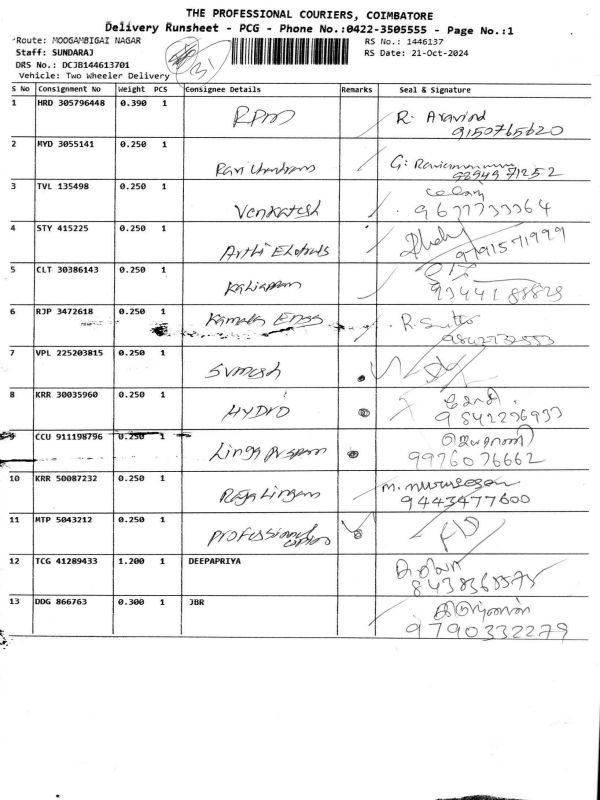 THE PROFESSIONAL COURIERS, COIMBATORE
Delivery Runsheet - PCG - Phone No.:0422-3505555 - Page No.:1
Route: MOOGAMBIGAI NAGAR RS No.: 1446137
Staff: SUNDARAJ RS Date: 21-Oct-2024
DRS No.: DCJB144613701
Vehicle: Two Wheeler Delivery
31
S No Consignment No Weight PCS Consignee Details Remarks Seal & Signature
1 HRD 305796448 0.390 1 RPM R. Aravind
9150765620
2 MYD 3055141 0.250 1 G:
8294971252
3 TVL 135498 0.250 1 Venkatesh
9677733364
4 STY 415225 0.250 1 Arthi
9791571999
5 CLT 30386143 0.250 1 Kaliappan
9344188829
6 RJP 3472618 0.250 1 Kamala Engg R.
9842732553
7 VPL 225203815 0.250 1 Suresh
8 KRR 30035960 0.250 1 HYDRO
9842236933
9 CCU 911198796 0.250 1
9976076662
10 KRR 50087232 0.250 1 Raja Lingam M. Murugesan
9443477600
11 MTP 5043212 0.250 1 Professional
12 TCG 41289433 1.200 1 DEEPAPRIYA
8438368575
13 DDG 866763 0.300 1 JBR
9790332279